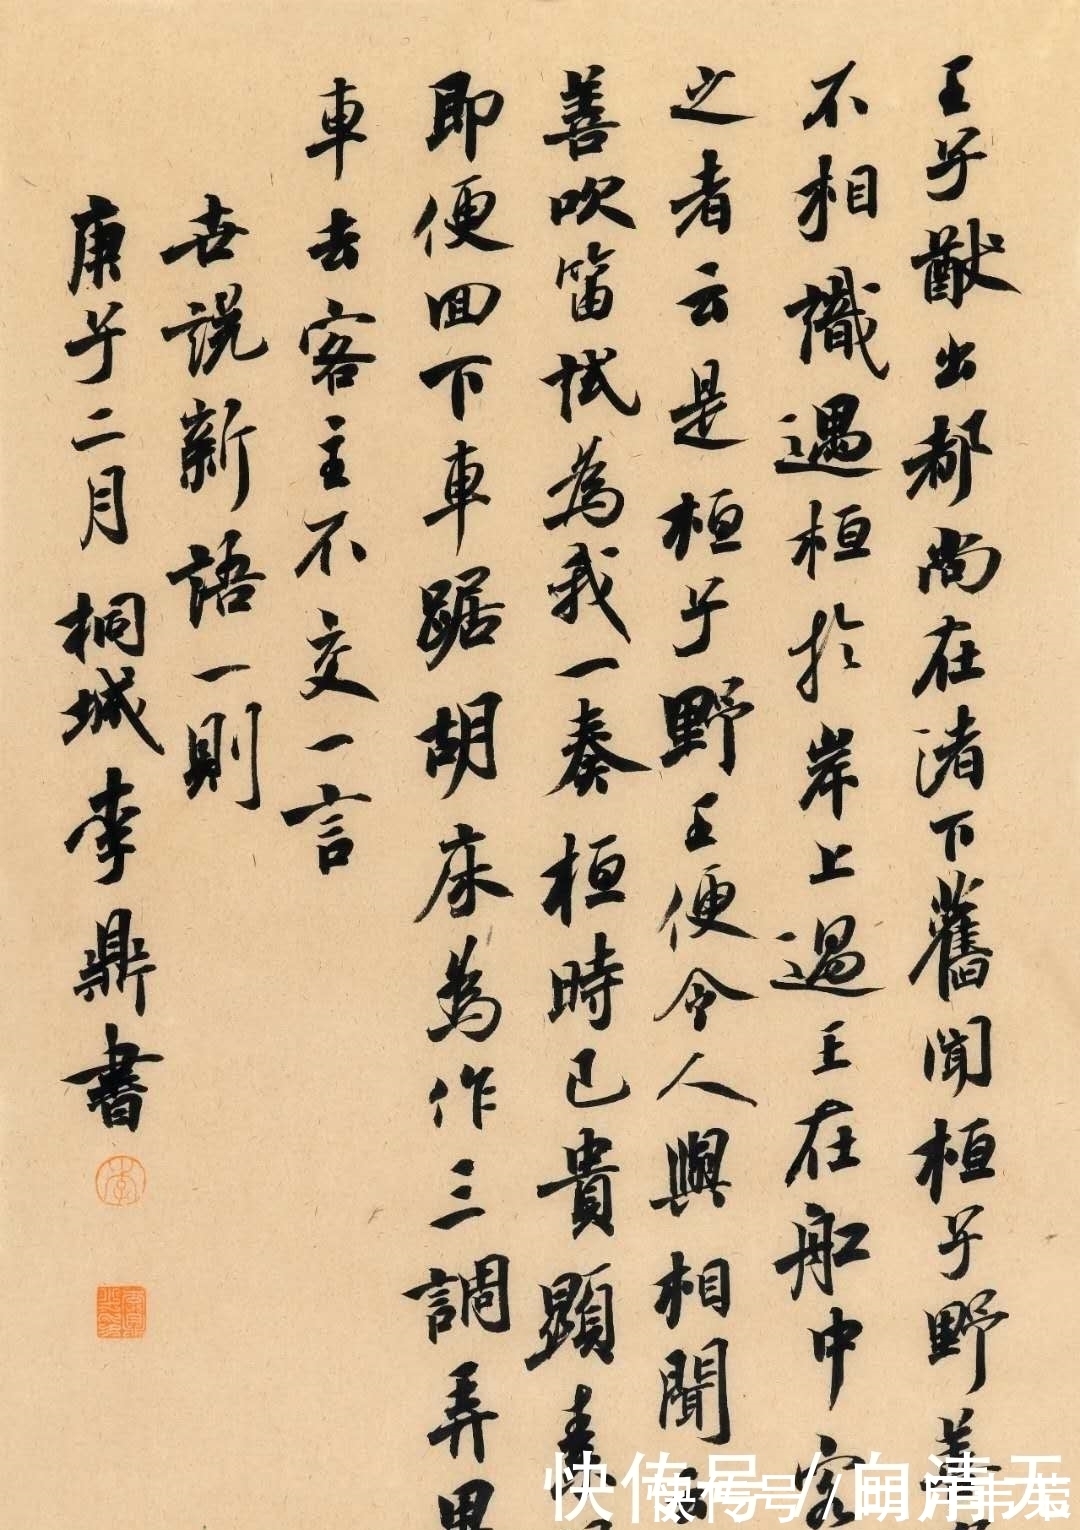 王子猷出都尚在渚下舊聞桓子野善
不相識遇桓於岸上過王在舡中客
之者云是桓子野王便令人與相聞
善吹笛試為我一奏桓時已貴顯素
即便回下車踞胡床為作三調弄畢
車去客主不交一言
世說新語一則
庚子二月 桐城李鼎書
快传号/